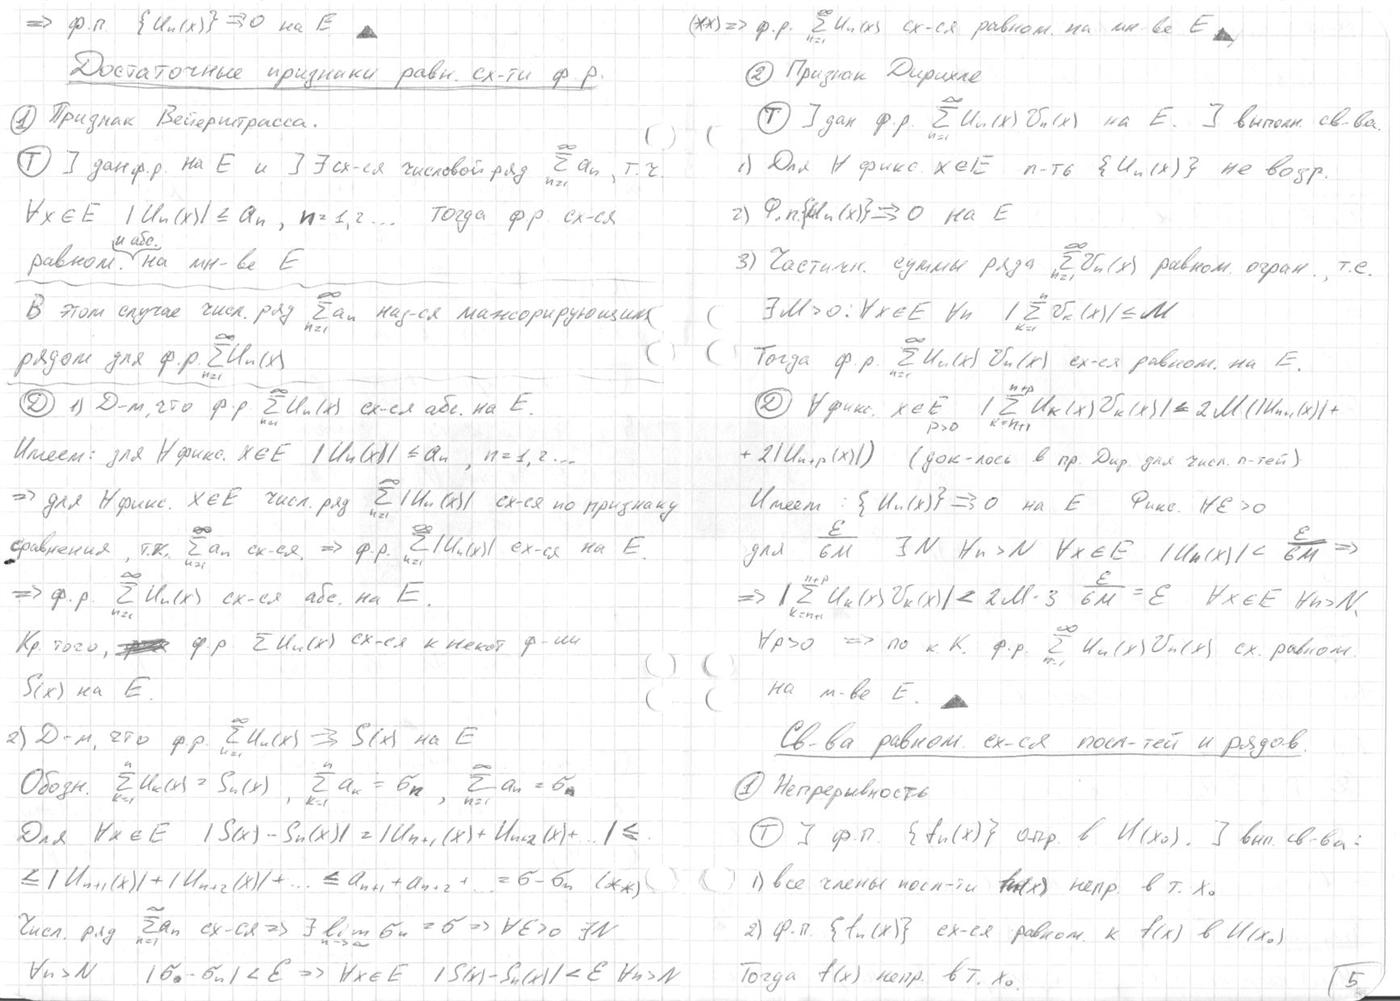 => ф.п. {Uₙ(x)} ⇉ 0 на E ▲
Достаточные признаки равн. сх-ти ф.р.
① Признак Вейерштрасса.
Ⓣ ] дан ф.р. на E и ] ∃ сх-ся числовой ряд ∑_{n=1}^∞ aₙ, т.ч.
∀x∈E |Uₙ(x)| ≤ aₙ, n=1,2... Тогда ф.р. сх-ся
равном. и абс. на мн-ве E
В этом случае числ. ряд ∑_{n=1}^∞ aₙ наз-ся мажорирующим
рядом для ф.р. ∑_{n=1}^∞ Uₙ(x)
Ⓓ 1) Д-м, что ф.р. ∑_{n=1}^∞ Uₙ(x) сх-ся абс. на E.
Имеем: для ∀ фикс. x∈E |Uₙ(x)| ≤ aₙ, n=1,2...
=> для ∀ фикс. x∈E числ. ряд ∑_{n=1}^∞ |Uₙ(x)| сх-ся по признаку
сравнения, т.к. ∑_{n=1}^∞ aₙ сх-ся, => ф.р. ∑_{n=1}^∞ |Uₙ(x)| сх-ся на E.
=> ф.р. ∑_{n=1}^∞ Uₙ(x) сх-ся абс. на E.
Кр. того, ф.р. ∑ Uₙ(x) сх-ся к некот ф-ии
S(x) на E.
2) Д-м, что ф.р. ∑_{n=1}^∞ Uₙ(x) ⇉ S(x) на E
Обозн. ∑_{k=1}^n Uₖ(x) = Sₙ(x), ∑_{k=1}^n aₖ = σₙ, ∑_{n=1}^∞ aₙ = σ
Для ∀x∈E |S(x) - Sₙ(x)| = |Uₙ₊₁(x) + Uₙ₊₂(x) + ...| ≤
≤ |Uₙ₊₁(x)| + |Uₙ₊₂(x)| + ... ≤ aₙ₊₁ + aₙ₊₂ + ... = σ - σₙ (**)
Числ. ряд ∑_{n=1}^∞ aₙ сх-ся => ∃ lim_{n→∞} σₙ = σ => ∀ε>0 ∃N
∀n>N |σ - σₙ| < ε => ∀x∈E |S(x) - Sₙ(x)| < ε ∀n>N
(**) => ф.р. ∑_{n=1}^∞ Uₙ(x) сх-ся равном. на мн-ве E ▲
② Признак Дирихле
Ⓣ ] дан ф.р. ∑_{n=1}^∞ Uₙ(x) Vₙ(x) на E. ] выполн. св-ва.
1) Для ∀ фикс. x∈E п-ть {Uₙ(x)} не возр.
2) Ф.п. {Uₙ(x)} ⇉ 0 на E
3) Частичн. суммы ряда ∑_{n=1}^∞ Vₙ(x) равном. огран., т.е.
∃M>0: ∀x∈E ∀n |∑_{k=1}^n Vₖ(x)| ≤ M
Тогда ф.р. ∑_{n=1}^∞ Uₙ(x) Vₙ(x) сх-ся равном. на E.
Ⓓ ∀ фикс. x∈E p>0 |∑_{k=n+1}^{n+p} Uₖ(x) Vₖ(x)| ≤ 2M(|Uₙ₊₁(x)| +
+ 2|Uₙ₊ₚ(x)|) (док-лось в пр. Дир. для числ. п-тей)
Имеем: {Uₙ(x)} ⇉ 0 на E Фикс. ∀ε>0
для ε/6M ∃N ∀n>N ∀x∈E |Uₙ(x)| < ε/6M =>
=> |∑_{k=n+1}^{n+p} Uₖ(x) Vₖ(x)| < 2M·3 ε/6M = ε ∀x∈E ∀n>N,
∀p>0 => по к К. ф.р. ∑_{n=1}^∞ Uₙ(x) Vₙ(x) сх. равном.
на м-ве E. ▲
Св-ва равном. сх-ся посл-тей и рядов.
① Непрерывность
Ⓣ ] ф.п. {fₙ(x)} опр. в U(x₀). ] вып. св-ва:
1) все члены посл-ти fₙ(x) непр. в т. x₀
2) ф.п. {fₙ(x)} сх-ся равном. к f(x) в U(x₀)
Тогда f(x) непр. в т. x₀.
5